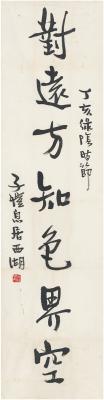 對遠方知色界空
丁亥綠陰時節
子愷息居西湖